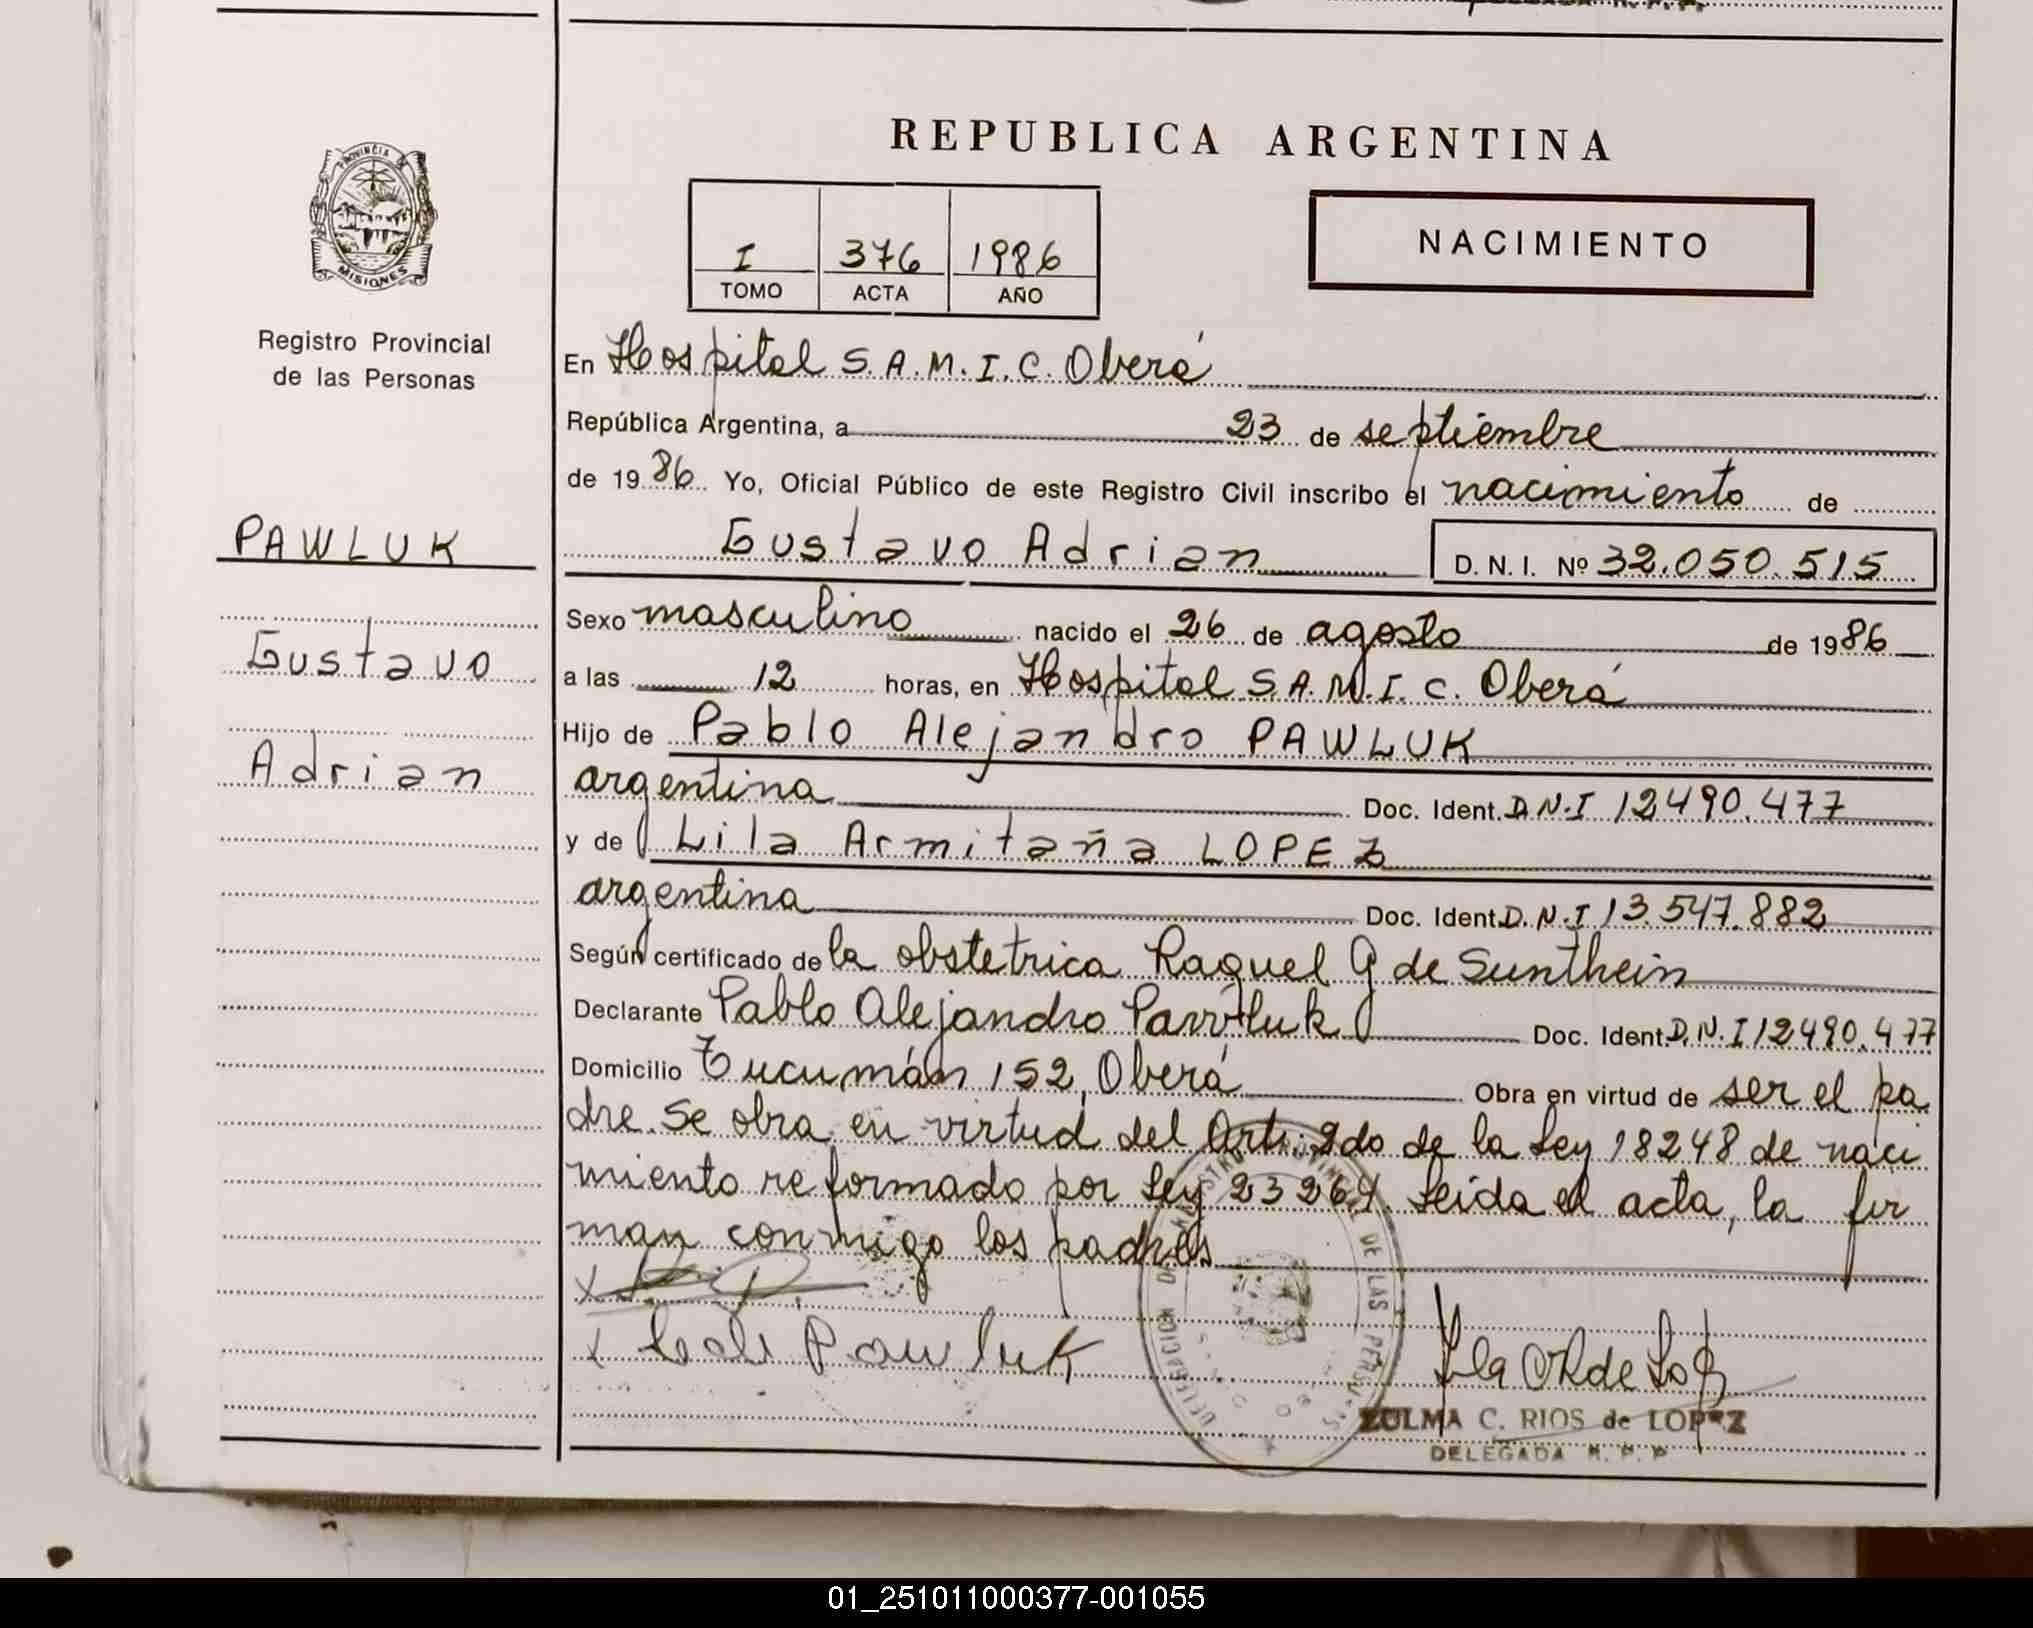 REPUBLICA ARGENTINA
PROVINCIA DE
MISIONES
Registro Provincial
de las Personas
I 376 1986
TOMO ACTA AÑO
NACIMIENTO
En Hospital S.A.M.I.C. Oberá
República Argentina, a 23 de septiembre
de 1986 Yo, Oficial Público de este Registro Civil inscribo el nacimiento de
Gustavo Adrian D. N. I. Nº 32.050.515
PAWLUK
Gustavo
Adrian
Sexo masculino nacido el 26 de agosto de 1986
a las 12 horas, en Hospital S.A.M.I.C. Oberá
Hijo de Pablo Alejandro PAWLUK
argentina Doc. Ident. D.N.I 12490.477
y de Lila Armitaña LOPEZ
argentina Doc. Ident. D.N.I 13.547.882
Según certificado de la obstetrica Raquel G de Sunthein
Declarante Pablo Alejandro Pawluk Doc. Ident. D.N.I 12490.477
Domicilio Tucumán 152, Oberá Obra en virtud de ser el pa
dre. Se obra en virtud del Art. 2do de la Ley 18248 de naci
miento reformado por Ley 23264. Leida el acta, la fir
man conmigo los padres
x
x Pawluk
DELEGACION DE LAS PERSONAS
ZULMA C. RIOS de LOPEZ
DELEGADA R. P. P
01_251011000377-001055